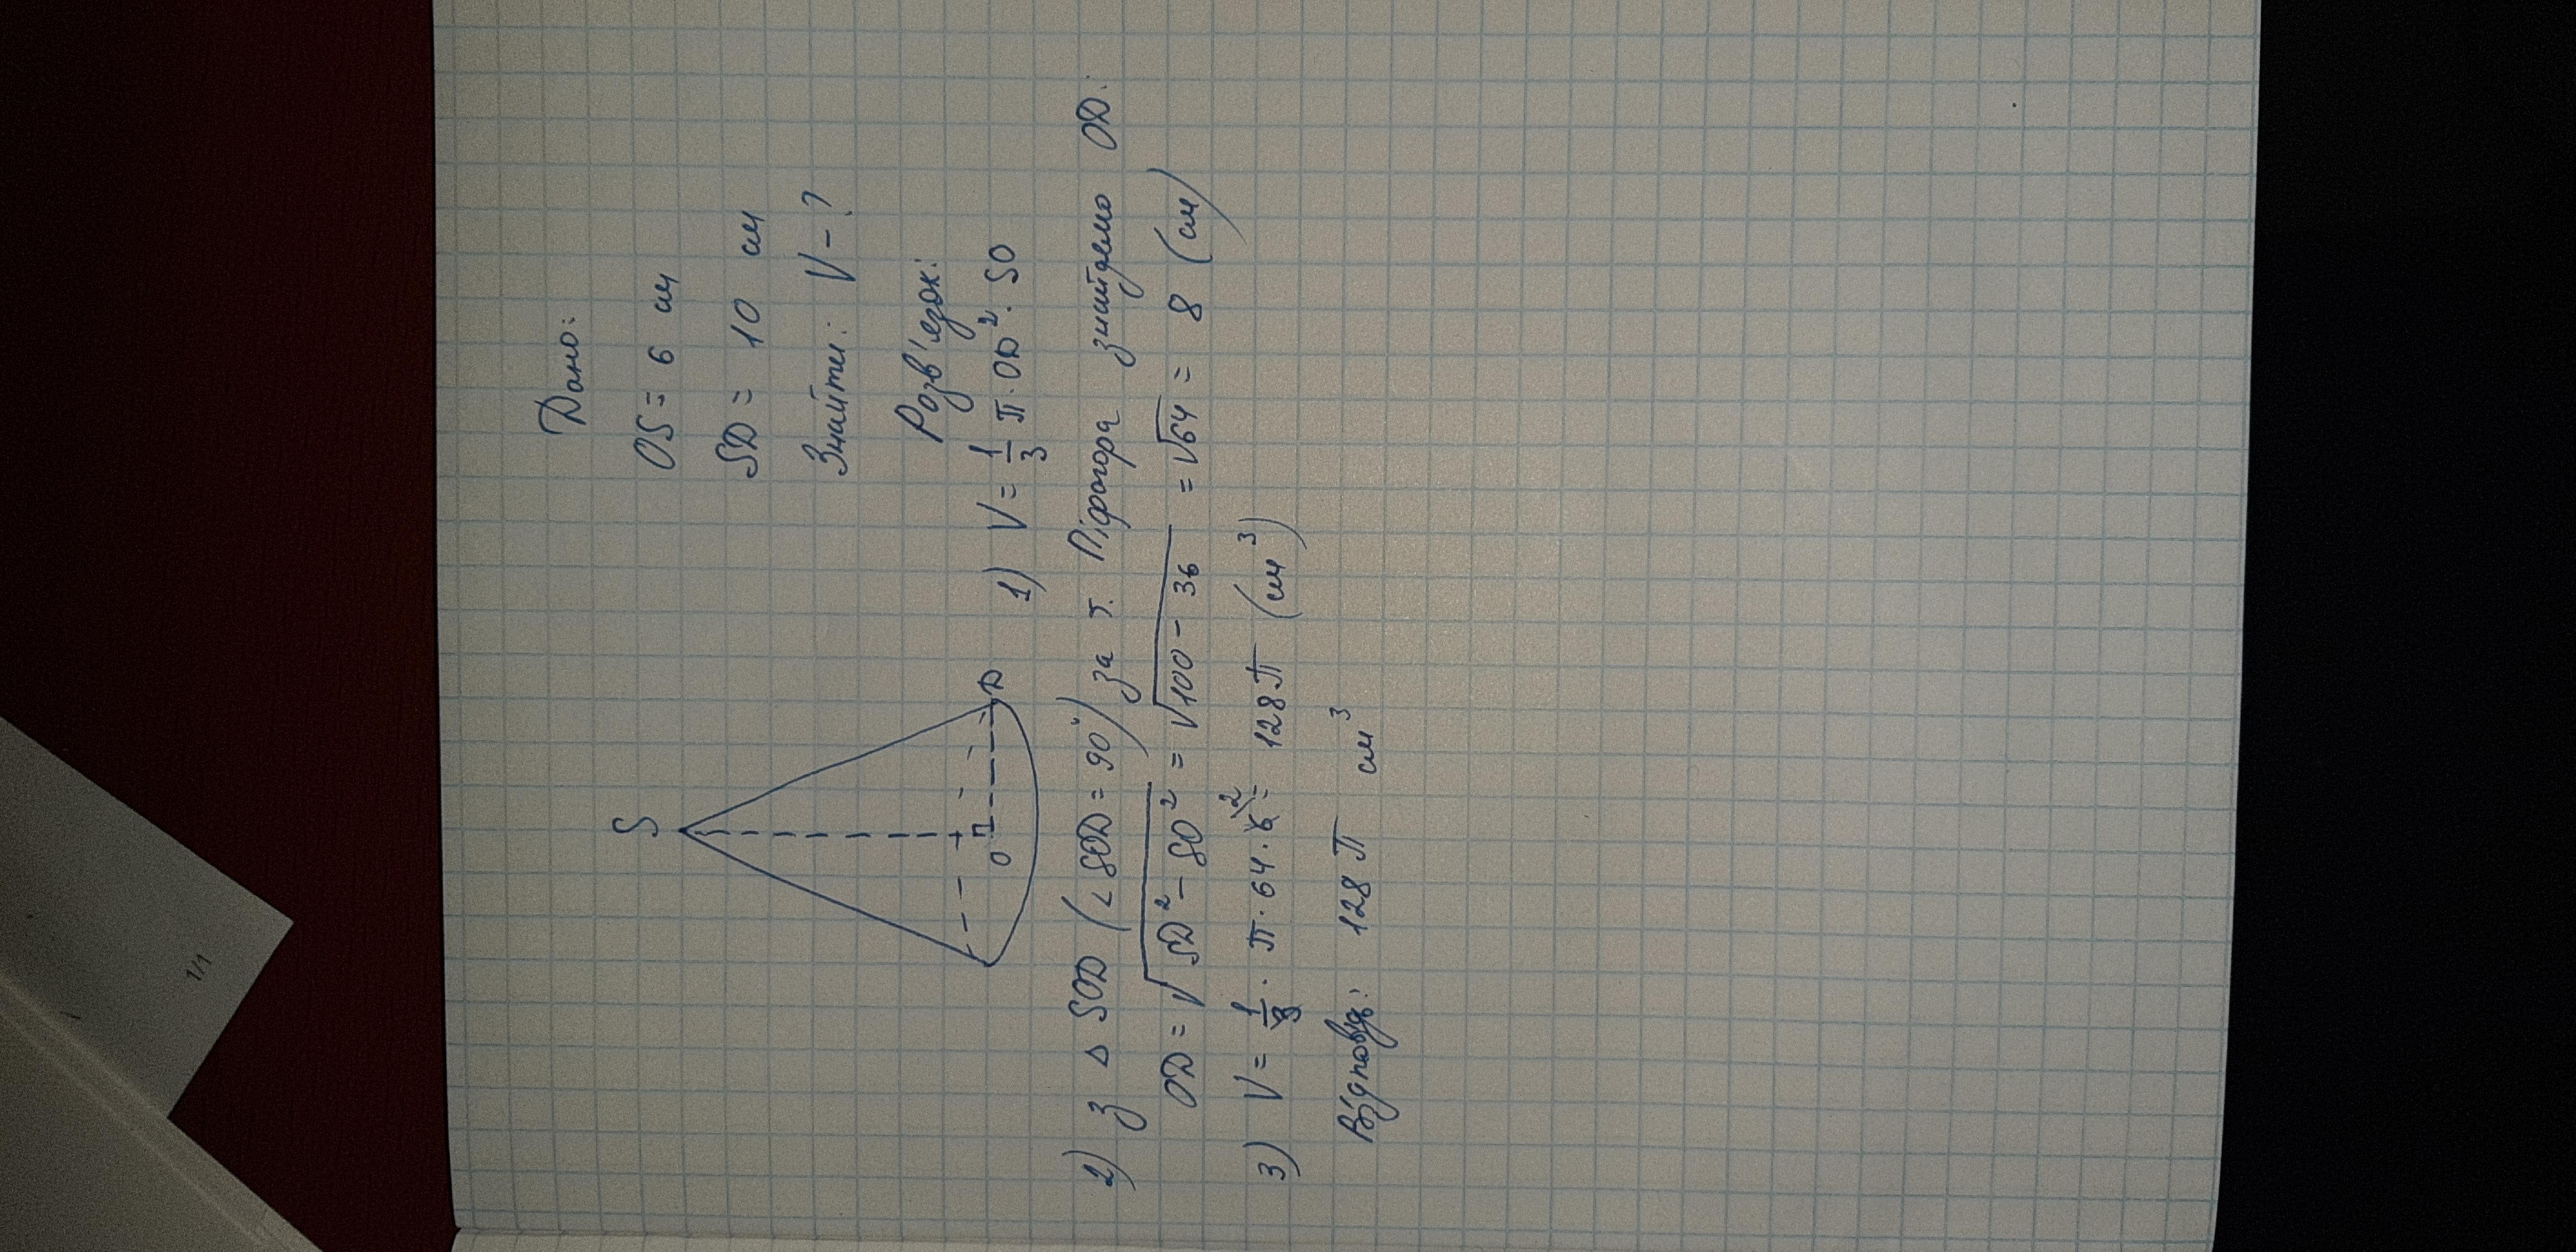 Дано:
OS = 6 см
SD = 10 см
Знайти: V - ?
Розв'язок:
1) V = 1/3 π · OD² · SO
S
O
D
2) З △ SOD (∠SOD = 90°) за т. Піфагора знайдемо OD:
OD = √(SD² - SO²) = √(100 - 36) = √64 = 8 (см)
3) V = 1/3 · π · 64 · 6² = 128 π (см³)
Відповідь: 128 π см³
1/1